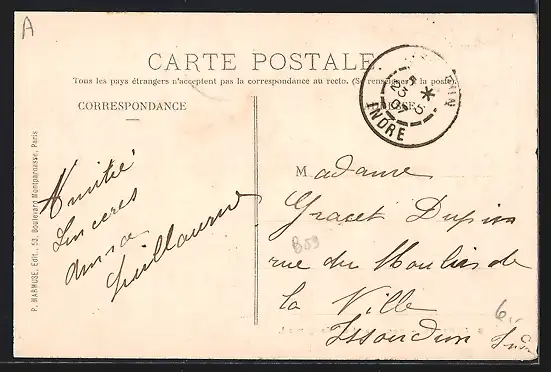 A
CARTE POSTALE
Tous les pays étrangers n'acceptent pas la correspondance au recto. (Se renseigner à la poste)
CORRESPONDANCE
INDRE
P. MARMUSE, Édit., 53, Boulevard Montparnasse, Paris
Amitié
Sinceres
Guillaume
Madame
Gracet Dupin
B59
rue du Moulin de
la Ville
Issoudun Indre
6